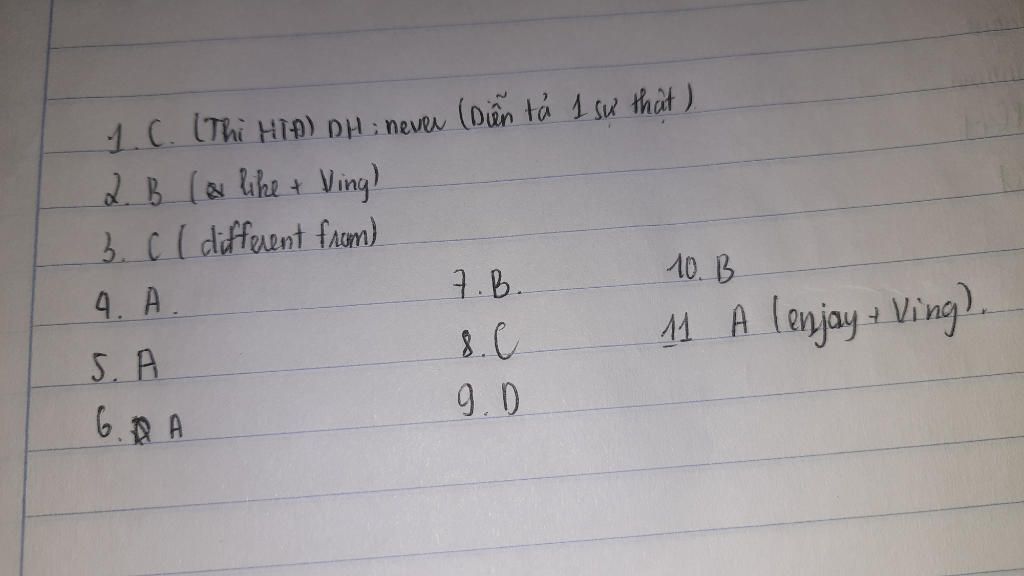 1. C. (Thì HTĐ) DH : never (Diễn tả 1 sự thật)
2. B ( like + Ving)
3. C ( different from)
4. A.
5. A
6. A
7. B.
8. C
9. D
10. B
11 A (enjoy + Ving).